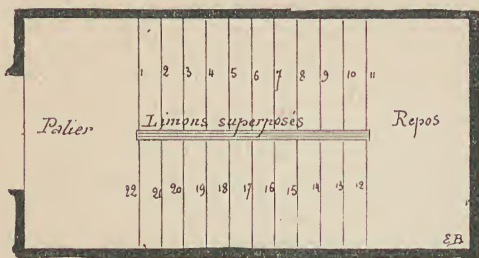 1 2 3 4 5 6 7 8 9 10 11
Palier Limons superposés Repos
22 21 20 19 18 17 16 15 14 13 12
E.B.